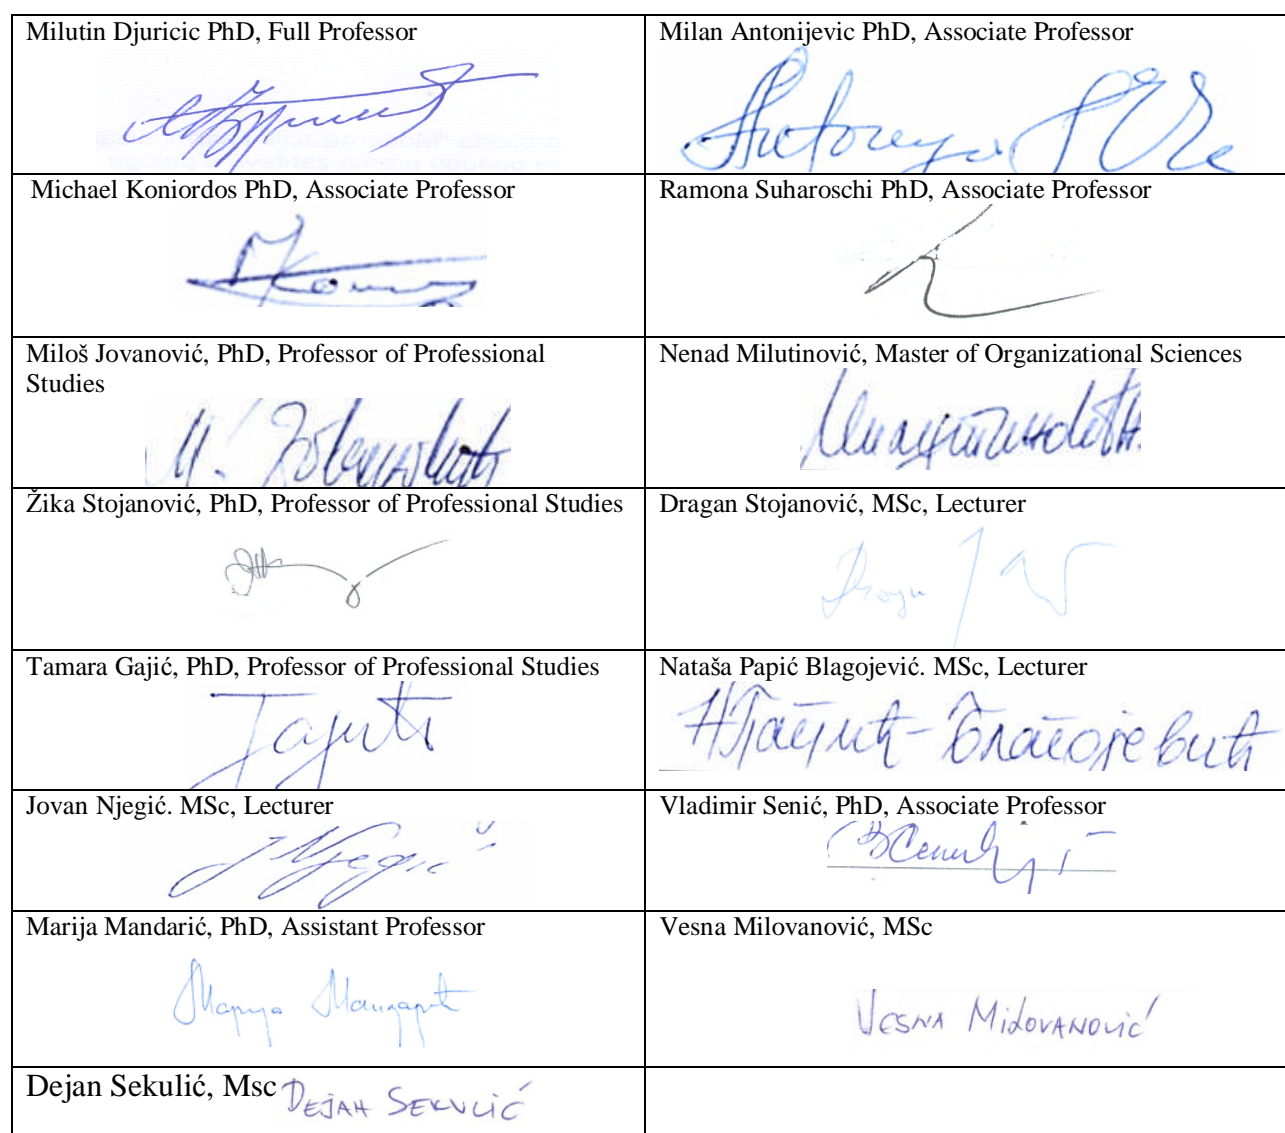 Milutin Djuricic PhD, Full Professor
Milan Antonijevic PhD, Associate Professor
Michael Koniordos PhD, Associate Professor
Ramona Suharoschi PhD, Associate Professor
Miloš Jovanović, PhD, Professor of Professional
Studies
Nenad Milutinović, Master of Organizational Sciences
Žika Stojanović, PhD, Professor of Professional Studies
Dragan Stojanović, MSc, Lecturer
Tamara Gajić, PhD, Professor of Professional Studies
Nataša Papić Blagojević. MSc, Lecturer
НПапић-Благојевић
Jovan Njegić. MSc, Lecturer
J Njegić
Vladimir Senić, PhD, Associate Professor
Marija Mandarić, PhD, Assistant Professor
Марија Мандарић
Vesna Milovanović, MSc
VESNA MILOVANOVIĆ
Dejan Sekulić, Msc
DEJAN SEKULIĆ